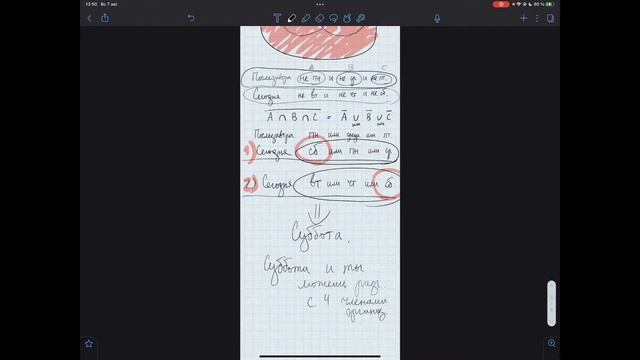 13:50 Вс 7 авг.
80 %
A B C
Послезавтра не пн и не ср и не пт.
Сегодня не вт и не чт и не сб.
A ∩ B ∩ C = A ∪ B ∪ C
или или
Послезавтра пн или среда или пт
1) Сегодня сб или пн или ср
2) Сегодня вт или чт или сб.
Суббота.
Суббота и ты
можешь разг.
с 4 членами